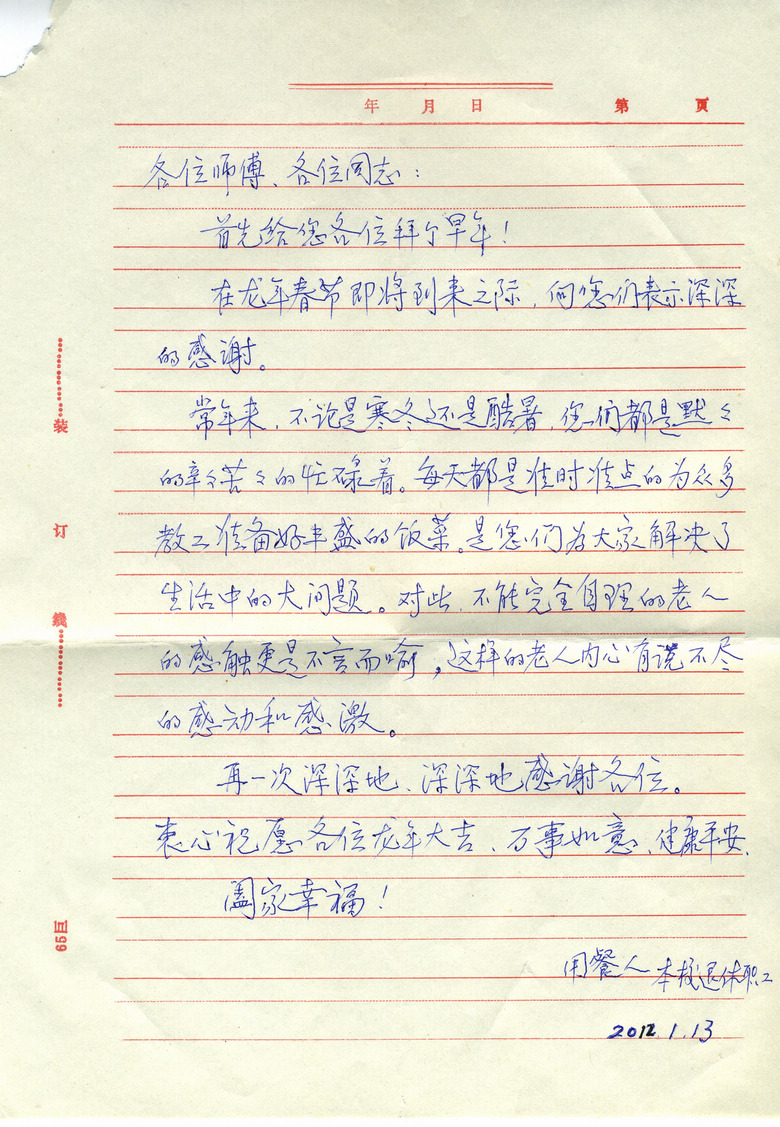 年 月 日 第 页
各位师傅、各位同志：
首先给您各位拜个早年！
在龙年春节即将到来之际，向您们表示深深
的感谢。
常年来，不论是寒冬还是酷暑，您们都是默々
的辛々苦々的忙碌着。每天都是准时准点的为众多
教工准备好丰盛的饭菜。是您们为大家解决了
生活中的大问题。对此，不能完全自理的老人
的感触更是不言而喻，这样的老人内心有说不尽
的感动和感激。
再一次深深地、深深地感谢各位。
衷心祝愿各位龙年大吉、万事如意、健康平安、
阖家幸福！
用餐人 本校退休职工
2012.1.13
装
订
线